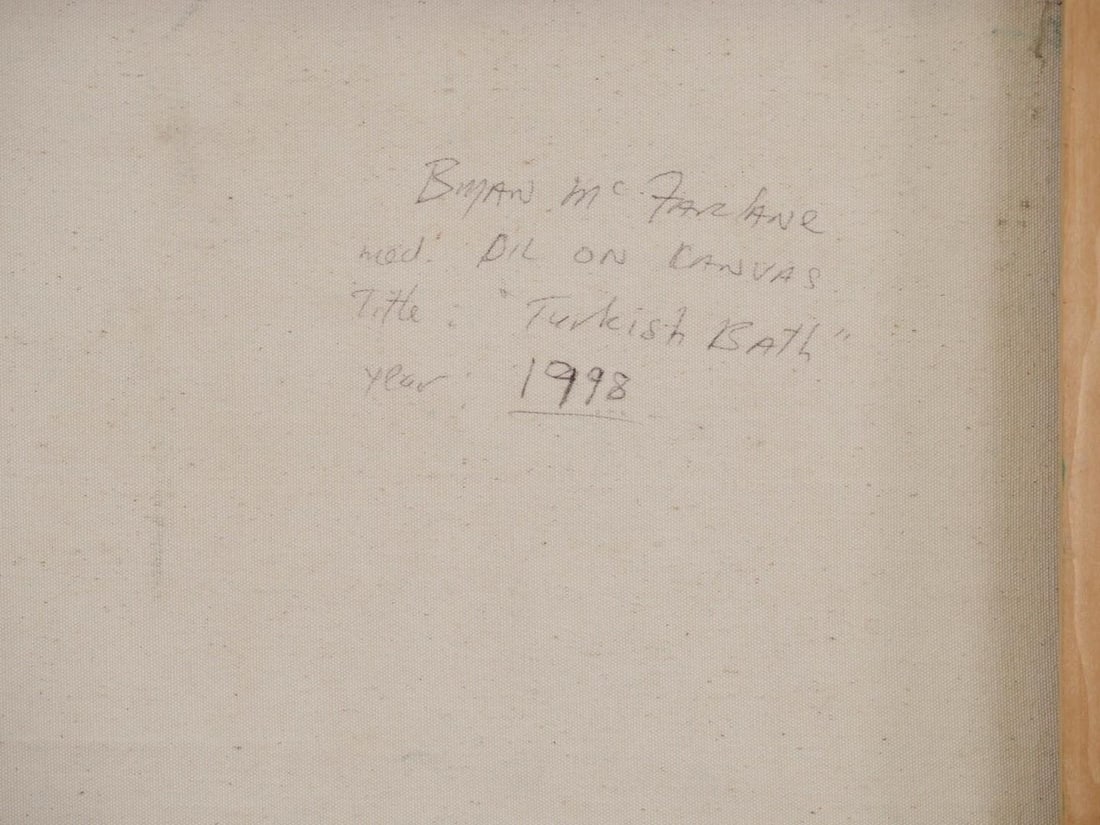 Bryan McFarlane
med: OIL ON CANVAS
Title: "Turkish Bath"
year: 1998